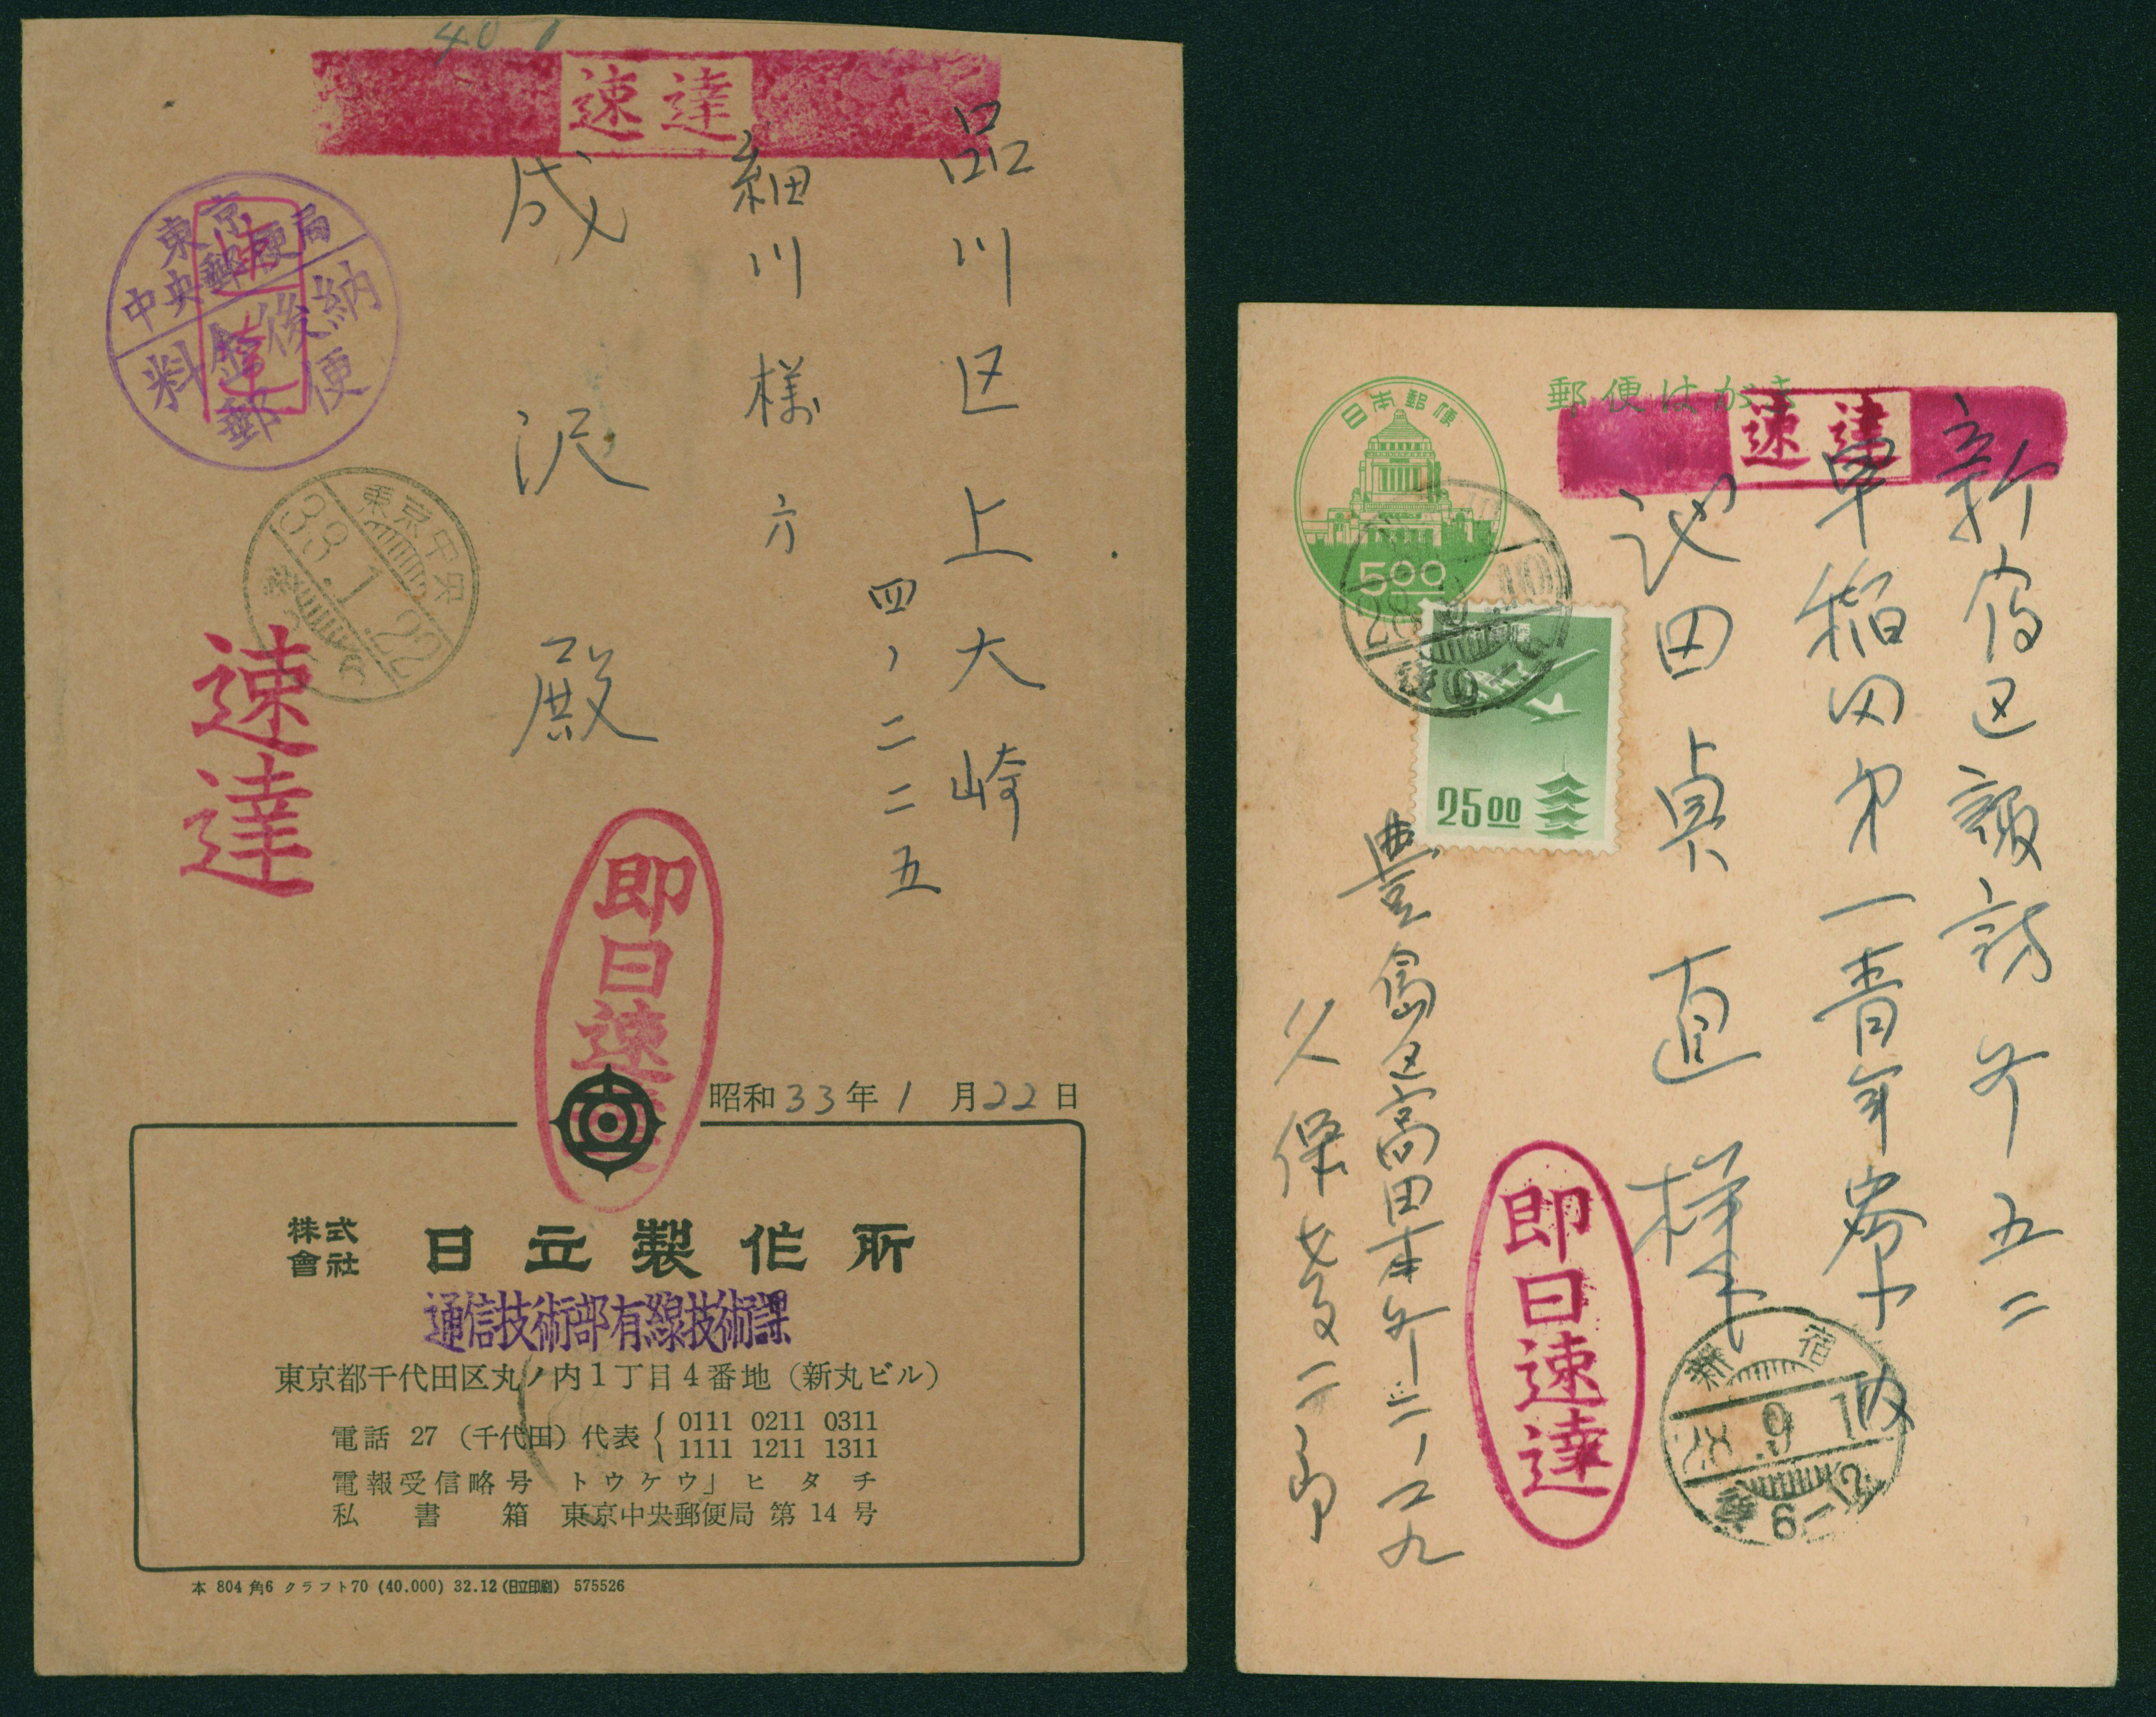 40
速達
品川区上大崎
四ノ二二五
細川様方
成沢殿
東京
中央郵便局
料金後納
郵便
速達
東京中央
33.1.22
速達
即日速達
昭和33年1月22日
株式
會社
日立製作所
通信技術部有線技術課
東京都千代田区丸ノ内1丁目4番地(新丸ビル)
電話 27 (千代田) 代表 { 0111 0211 0311
1111 1211 1311
電報受信略号 トウケウ」ヒタチ
私書箱 東京中央郵便局 第14号
本 804 角6 クラフト70 (40,000) 32.12 (日立印刷) 575526
郵便はがき
速達
日本郵便
5.00
25.00
新宿区諏訪町五二
早稲田第一青年寮
池田貞直様
内
豊島区高田本町二ノ
久保
即日速達
新宿
28.9.10
6-12